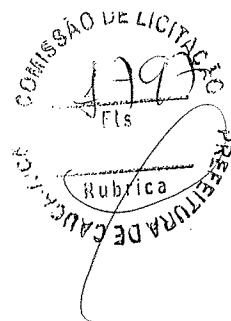 COMISSÃO DE LICITAÇÃO
1797
Fls
Rubrica
PREFEITURA DE CAUCAIA